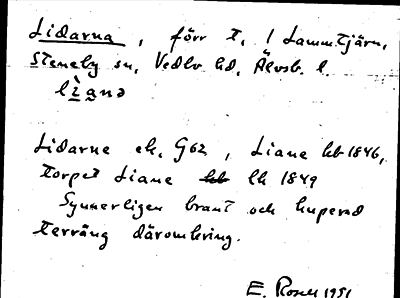 Lidarna, förr t. / Lamm.tjärn,
Steneby sn, Vedbo hd, Älvsb. l.
lìanə
Lidarne ek. G62, Liane hb 1846,
torpet Liane lh 1849
Synnerligen brant och kuperad
terräng däromkring.
E. Rosell 1951